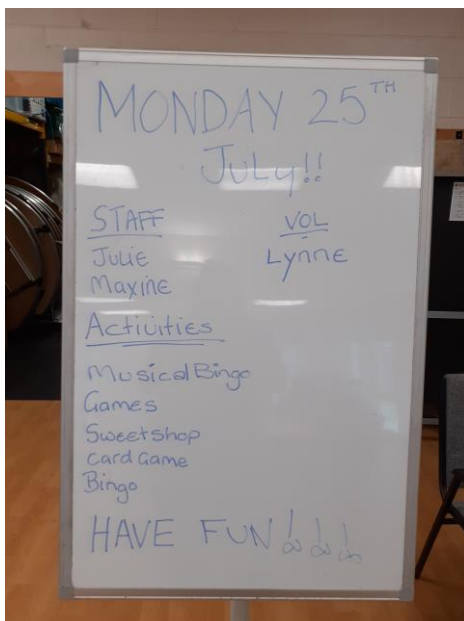 MONDAY 25TH
July!!
STAFF VOL
Julie Lynne
Maxine
Activities
Musical Bingo
Games
Sweetshop
Card Game
Bingo
HAVE FUN!!!